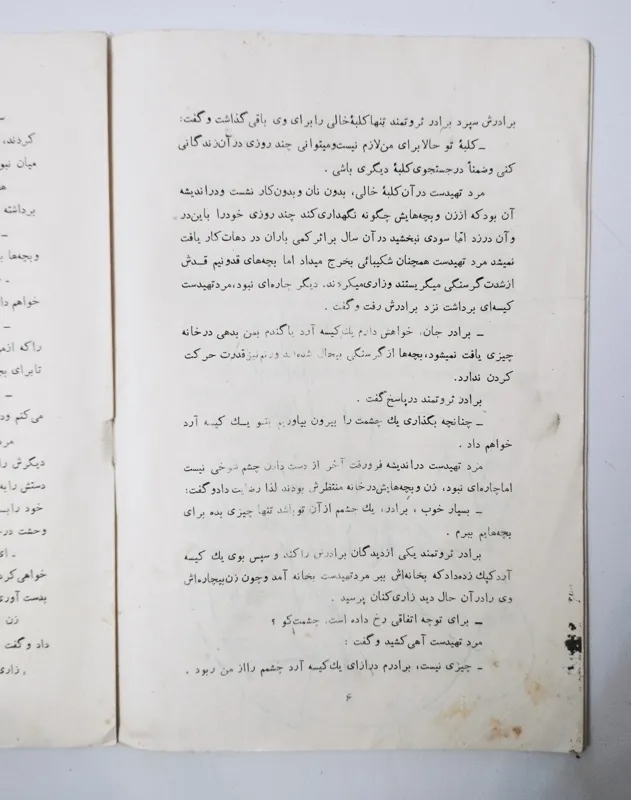 برادرش سپرد برادر ثروتمند تنها کلبهٔ خالی را برای وی باقی گذاشت و گفت:
ـ کلبهٔ تو حالا برای من لازم نیست و میتوانی چند روزی در آن زندگانی
کنی وضمناً در جستجوی کلبهٔ دیگری باشی .
مرد تهیدست در آن کلبهٔ خالی، بدون نان و بدون کار نشست و در اندیشه
آن بود که از زن و بچه‌هایش چگونه نگهداری کند چند روزی خود را باین در
و آن در زد امّا سودی نبخشید در آن سال بر اثر کمی باران در دهات کار یافت
نمیشد مرد تهیدست همچنان شکیبائی بخرج میداد اما بچه‌های قد و نیم قدش
از شدت گرسنگی میگریستند و زاری میکردند. دیگر چاره‌ای نبود، مرد تهیدست
کیسه‌ای برداشت نزد برادرش رفت و گفت .
ـ برادر جان، خواهش دارم یك کیسه آرد یا گندم بمن بدهی در خانه
چیزی یافت نمیشود، بچه‌ها از گرسنگی بیحال شده‌اند و زنم نیز قدرت حرکت
کردن ندارد.
برادر ثروتمند در پاسخ گفت .
ـ چنانچه بگذاری یك چشمت را بیرون بیاورم بتو یـك کیسه آرد
خواهم داد .
مرد تهیدست در اندیشه فرو رفت آخر از دست دادن چشم شوخی نیست
اما چاره‌ای نبود، زن و بچه‌هایش در خانه منتظرش بودند لذا رضایت داد و گفت:
ـ بسیار خوب ، برادر، یك چشمم از آن تو باشد تنها چیزی بده برای
بچه‌هایم ببرم .
برادر ثروتمند یکی از دیدگان برادرش را کند و سپس بوی یك کیسه
آرد کپك زده داد که بخانه‌اش ببر مرد تهیدست بخانه آمد و چون زن بیچاره‌اش
وی را در آن حال دید زاری کنان پرسید .
ـ برای تو چه اتفاقی رخ داده است. چشمت کو ؟
مرد تهیدست آهی کشید و گفت :
ـ چیزی نیست، برادرم در ازای یك کیسه آرد چشمم را از من ربود .
۶
ـ
کردند،
میان نبو
برداشته
ـ
و بچه‌ها
خواهم دا
ـ
را که ازم
تا برای بچ
ـ
می‌کنم ود
مرد
دیگرش را
دستش را به
خود را به
وحشت در
ـ ای
خواهی کرد
بدست آوری
زن
داد و گفت
زاری